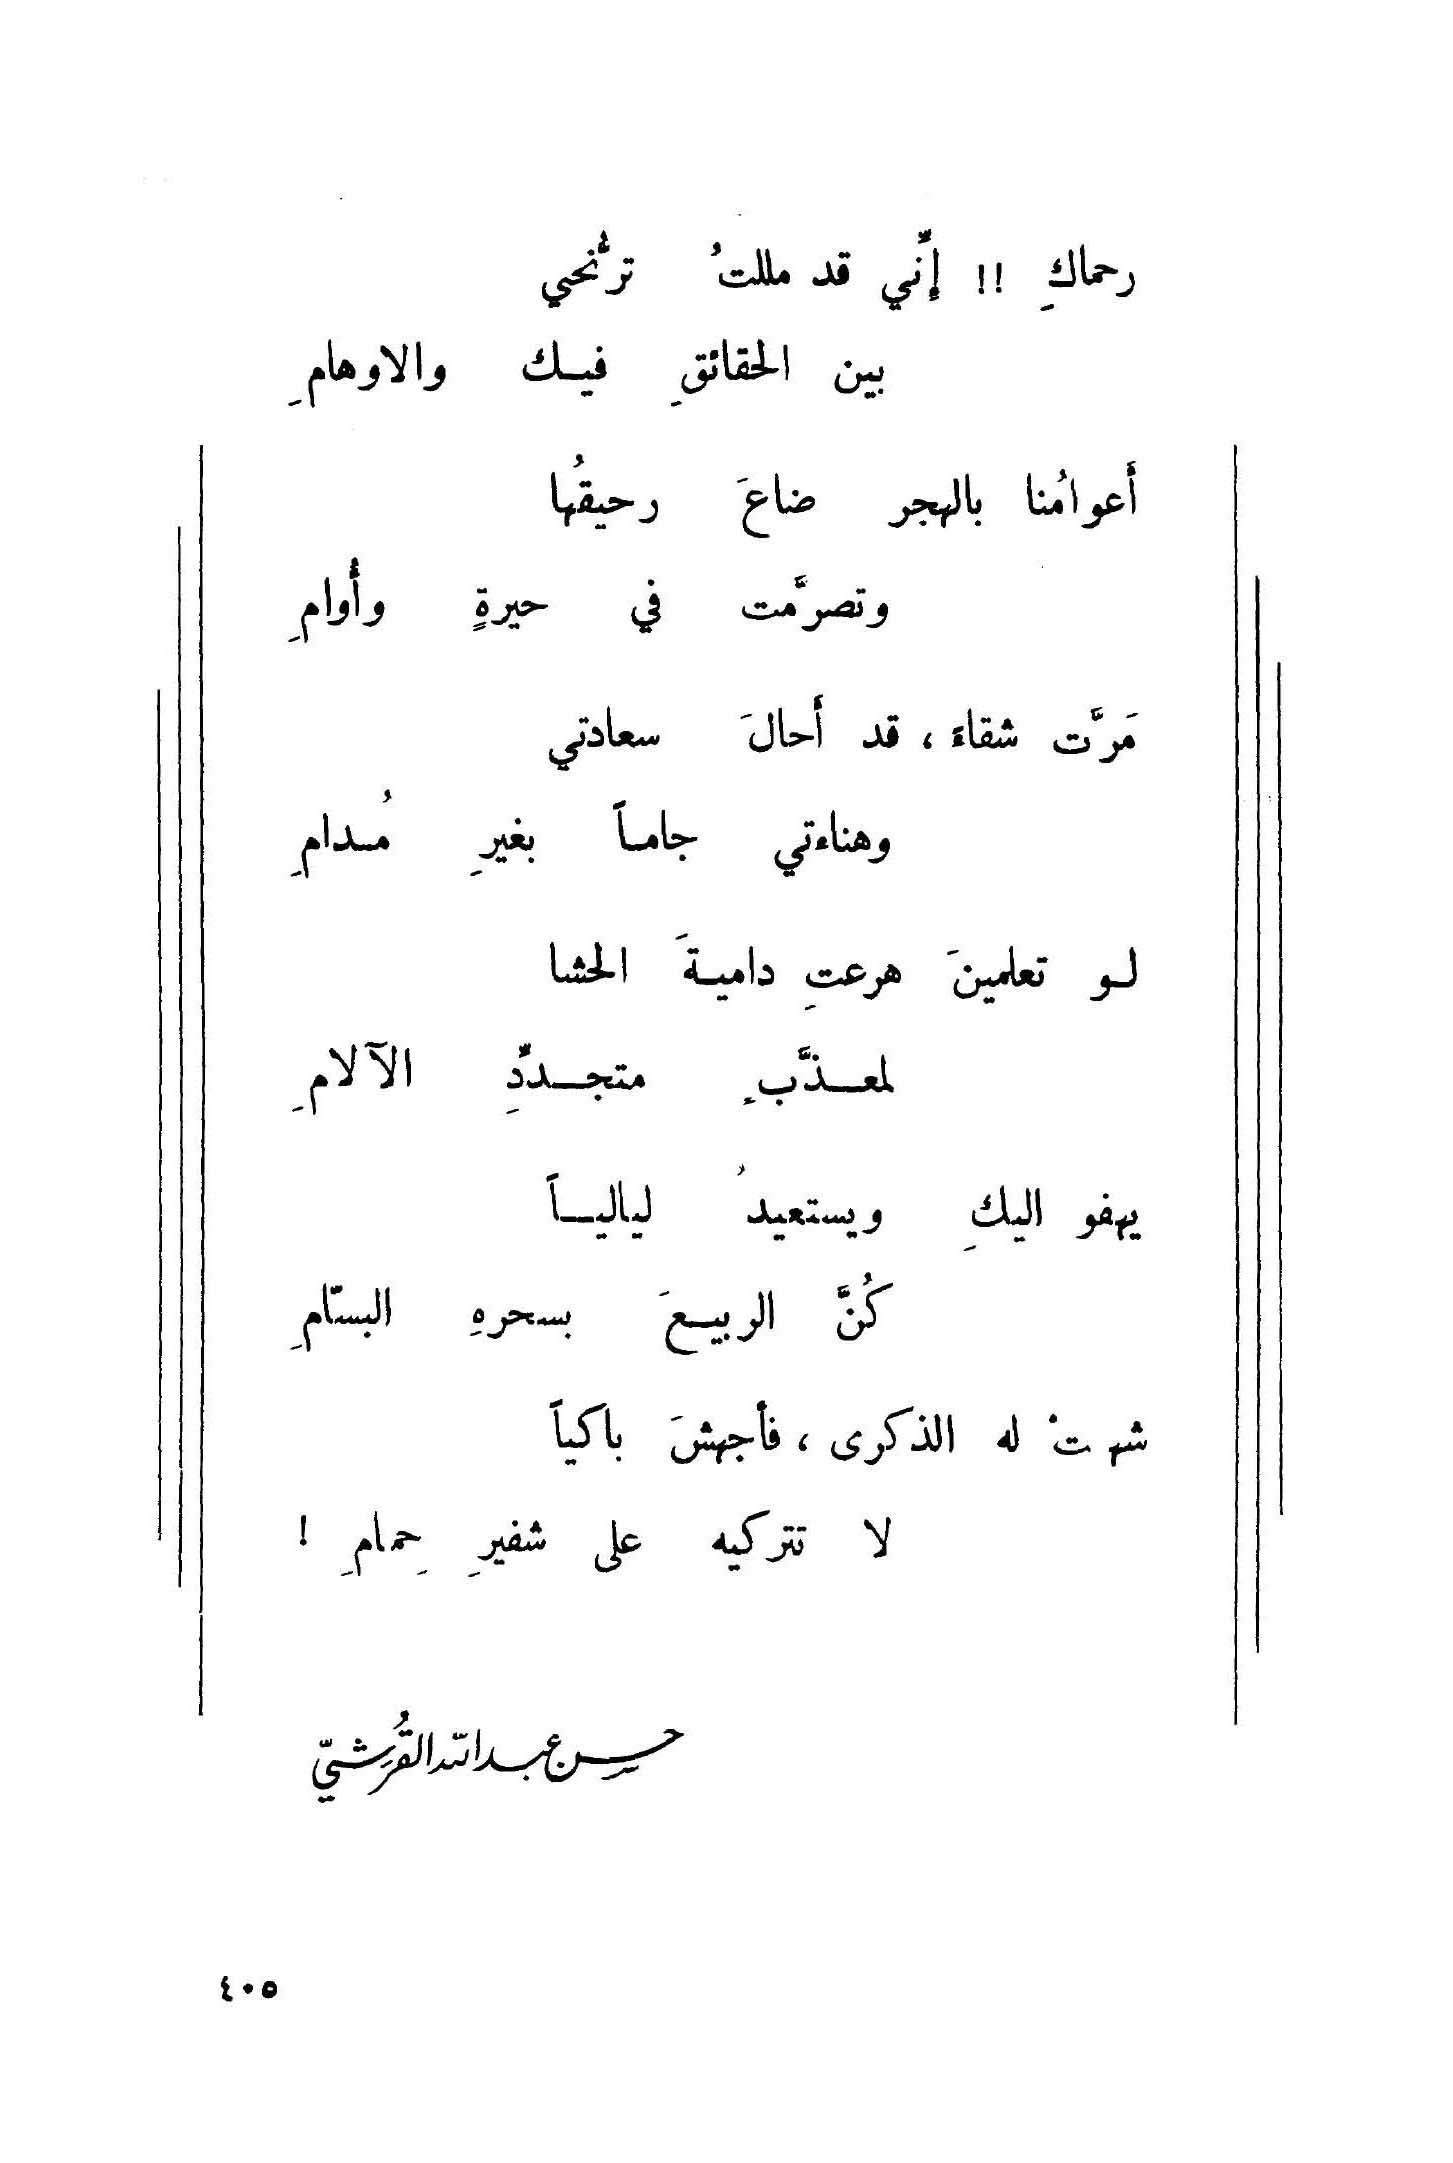 رحماكِ !! إنِّي قد مللتُ ترنُّحي
بين الحقائقِ فيك والاوهامِ
أعوامُنا بالهجر ضاعَ رحيقُها
وتصرَّمت في حيرةٍ وأُوامِ
مَرَّت شقاءً ، قد أحالَ سعادتي
وهناءتي جاماً بغيرِ مُدامِ
لو تعلمينَ هرعتِ داميةَ الحشا
لمعذَّبٍ متجددِّ الآلامِ
يهفو اليكِ ويستعيدُ ليالياً
كُنَّ الربيعَ بسحرهِ البسّامِ
شهت له الذكرى ، فأجهشَ باكياً
لا تتركيه على شفيرِ حِمامِ !
حسن عبدالله القُرشيّ
٤٠٥